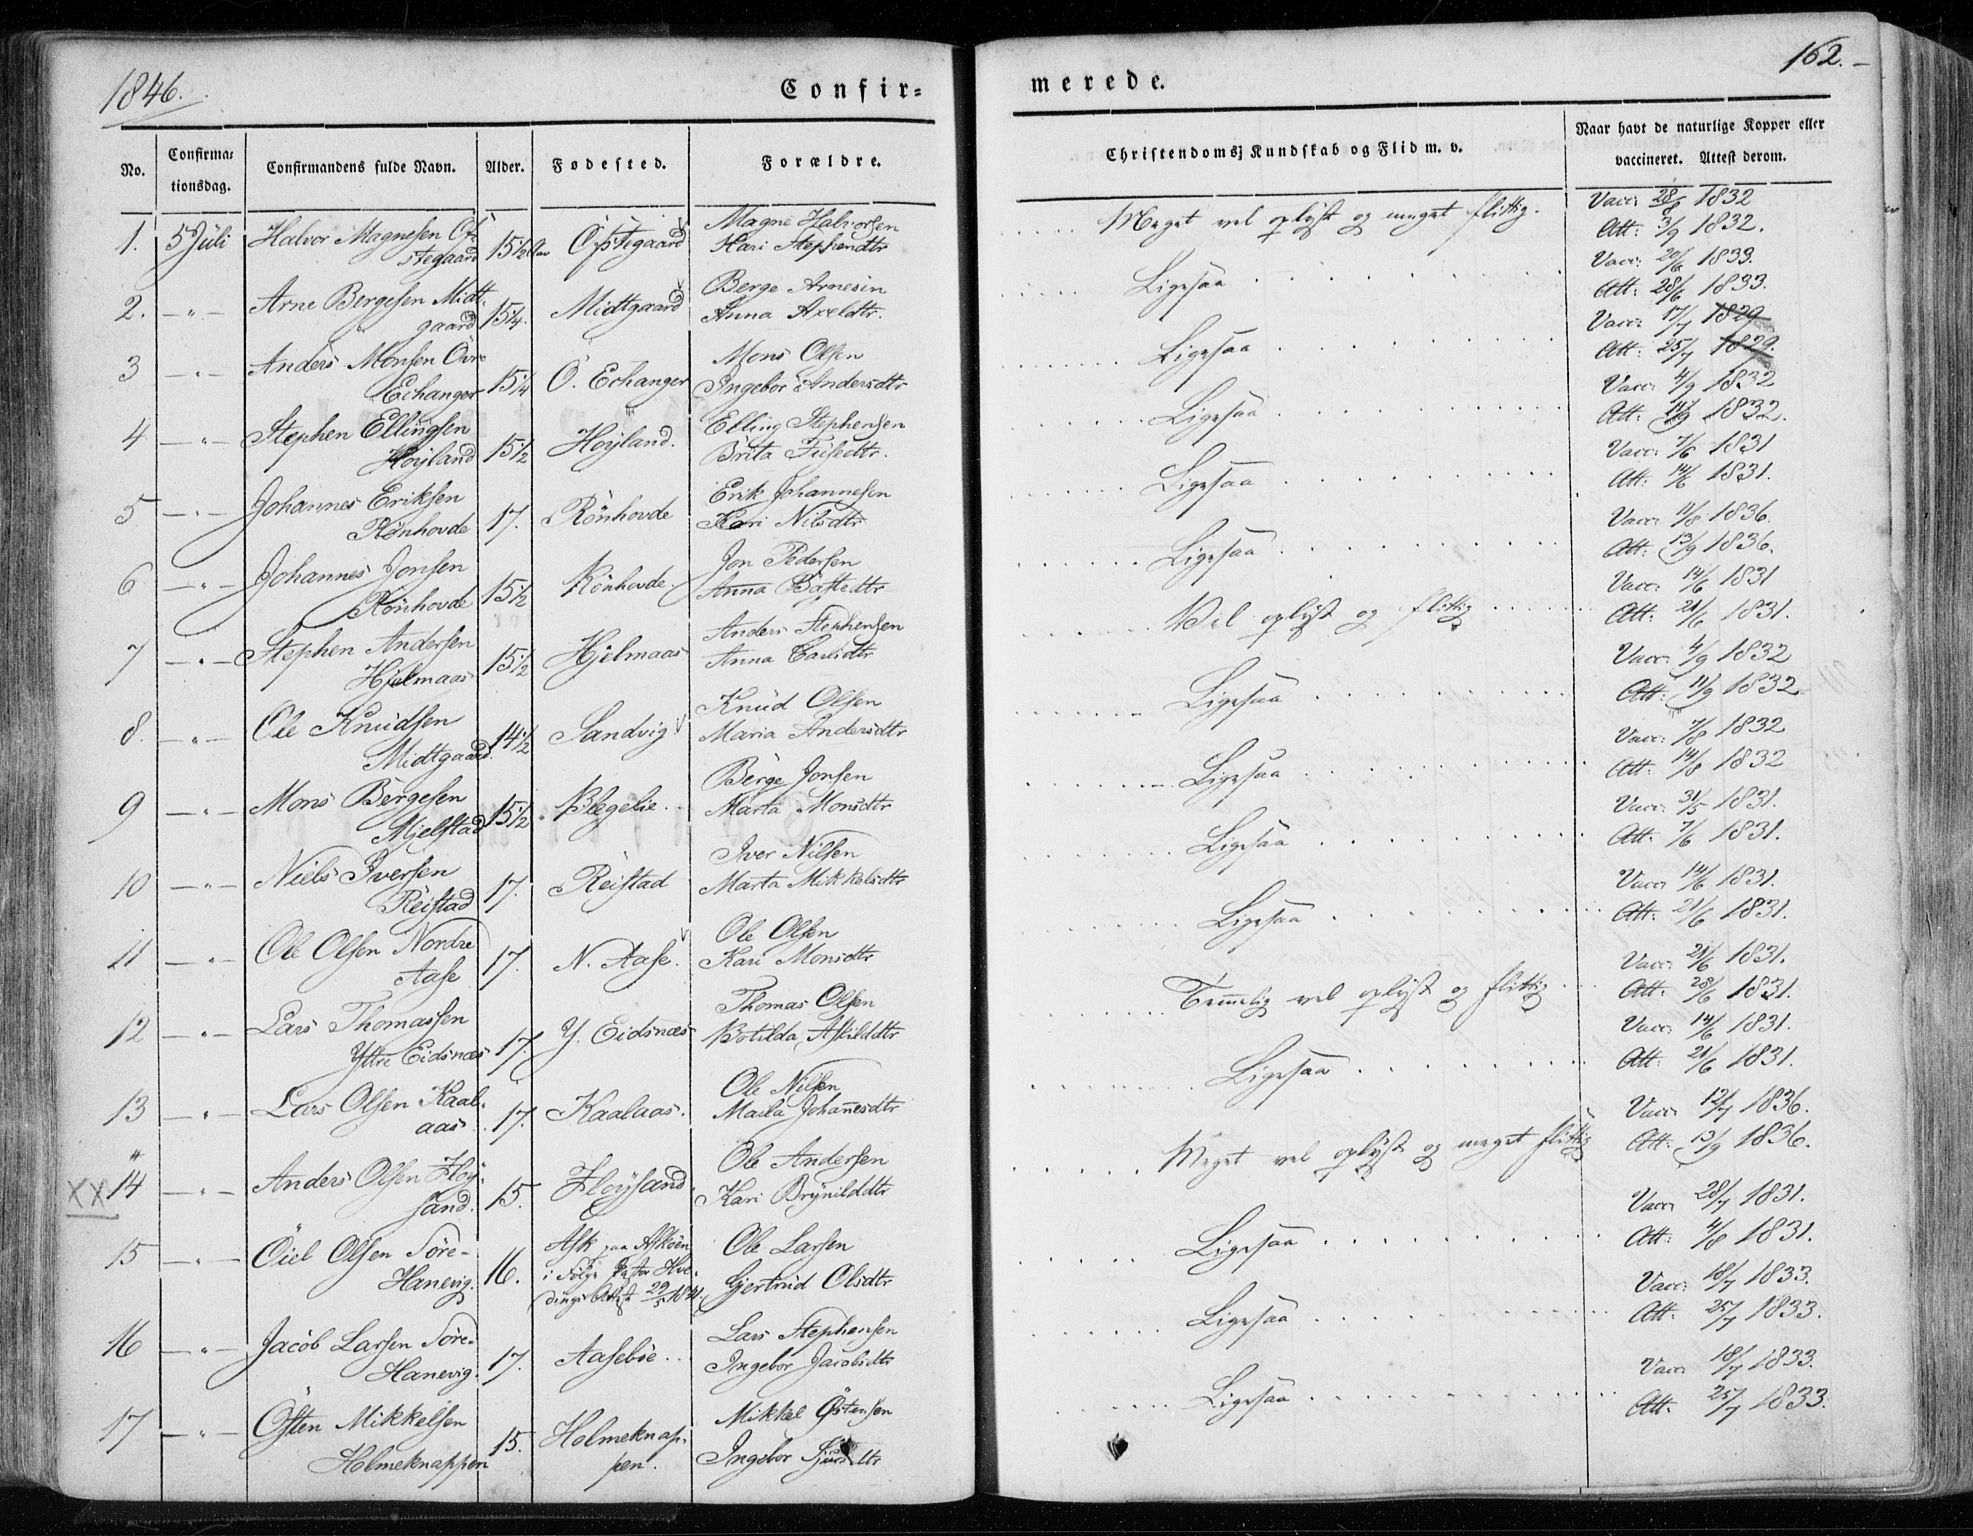 1846.
Confir=
merede.
162.
No.
Confirma:
tionsdag.
Confirmandens fulde Navn.
Alder.
Fødested.
Forældre.
Christendoms Kundskab og Flid m. v.
Naar havt de naturlige Kopper eller
vaccineret. Attest derom.
1. 5 Juli Halvor Magnesen Öf-
stegaard 15½ Aar Öfstegaard Magne Halvorsen
Kari Stephensdtr
Meget vel oplyst og meget flittig.
Vacc: 28/8 1832
Att: 3/9 1832.
2. -"- Arne Bergesen Midt-
gaard 15¼. Midtgaard Berge Arnesen
Anna Axeldtr.
Ligesaa
Vacc: 20/6 1833.
Att: 28/6 1833.
3 -"- Anders Monsen Övre
Echanger 15¼ Ö. Echanger Mons Olsen
Ingebor Andersdtr
Ligesaa
Vacc: 17/7 1829
Att: 25/7 1829.
4 -"- Stephen Ellingsen
Höyland 15½ Höyland. Elling Stephensen
Brita Fusedtr.
Ligesaa
Vacc: 4/9 1832
Att: 11/9 1832.
5 -"- Johannes Eriksen
Rönhovde 17. Rönhovde Erik Johannesen
Kari Nilsdtr.
Ligesaa
Vacc: 7/6 1831
Att: 14/6 1831.
6 -"- Johannes Jonsen
Rönhovde 15½ Rönhovde. Jon Pedersen
Anna Bastedtr
Ligesaa
Vacc: 11/8 1836.
Att: 13/9 1836.
7 -"- Stephen Andersen
Hjelmaas 15½ Hjelmaas Anders Stephensen
Anna Carlsdtr
Vel oplyst og flittig
Vacc: 14/6 1831
Att: 21/6 1831.
8. -"- Ole Knudsen
Midtgaard. 14½ Sandvig Knud Olsen
Maria Andersdtr
Ligesaa
Vacc: 4/9 1832
Att: 11/9 1832.
9 -"- Mons Bergesen
Mjelstad 15½ Blegelie. Berge Jonsen
Marta Monsdtr
Ligesaa
Vacc: 7/8 1832
Att: 14/8 1832
10 -"- Niels Iversen
Reistad 17. Reistad Iver Nilsen
Marta Mikkelsdtr
Ligesaa
Vacc: 31/5 1831.
Att: 7/6 1831.
11 -"- Ole Olsen Nordre
Aase 17. N. Aase. Ole Olsen
Kari Monsdtr
Ligesaa
Vacc: 14/6 1831.
Att: 21/6 1831.
12 -"- Lars Thomassen
Yttre Eidsnæs 17. Y. Eidsnæs Thomas Olsen
Botilda Askilddtr
Temmelig vel oplyst og flittig
Vacc: 21/6 1831.
Att: 28/6 1831.
13 -"- Lars Olsen Kaal-
aas 17. Kaalaas. Ole Nilsen
Marta Johannesdtr
Ligesaa
Vacc: 14/6 1831.
Att: 21/6 1831.
XX 14 -"- Anders Olsen Flöy-
sand. 15. Flöysand. Ole Andersen
Kari Brynilddtr
Meget vel oplyst og meget flittig
Vacc: 12/7 1836.
Att: 13/9 1836.
15 -"- Öiel Olsen Söre-
Hanevig. 16. Ask paa Asköen
i Fölge Pastor Hve-
dings Attest 29/5 1841. Ole Larsen
Gjertrud Olsdtr.
Ligesaa
Vacc: 28/7 1831.
Att: 4/8 1831.
16 -"- Jacob Larsen Söre-
Hanevig. 17. Aaseböe. Lars Stephensen
Ingebor Jacobsdtr
Ligesaa
Vacc: 18/7 1833.
Att: 25/7 1833.
17 -"- Östen Mikkelsen
Holmeknappen 15. Holmeknap-
pen. Mikkel Östensen
Ingebor
Ligesaa
Vacc: 18/7 1833.
Att: 25/7 1833.